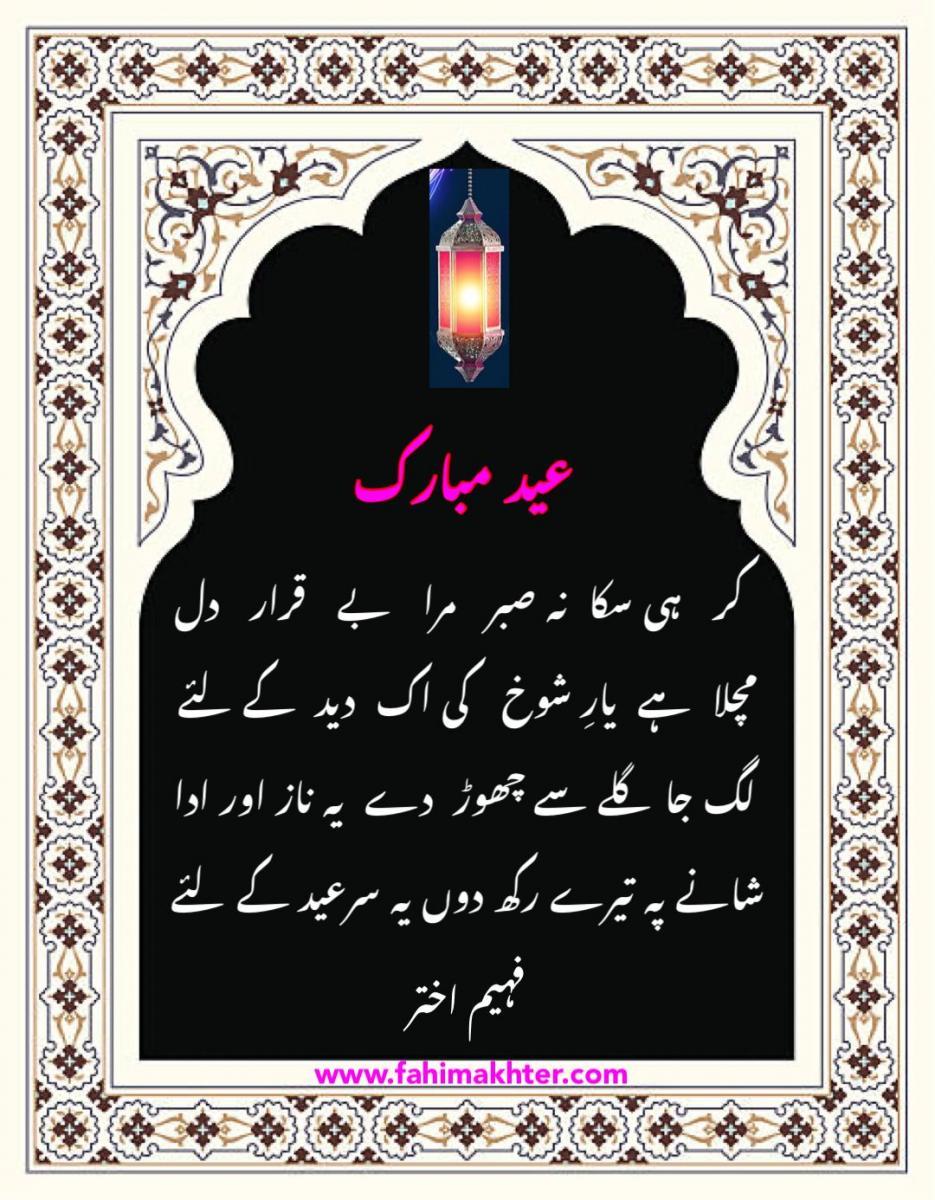 عید مبارک
کر ہی سکا نہ صبر مرا بے قرار دل
مچلا ہے یارِ شوخ کی اک دید کے لئے
لگ جا گلے سے چھوڑ دے یہ ناز اور ادا
شانے پہ تیرے رکھ دوں یہ سر عید کے لئے
فہیم اختر
www.fahimakhter.com